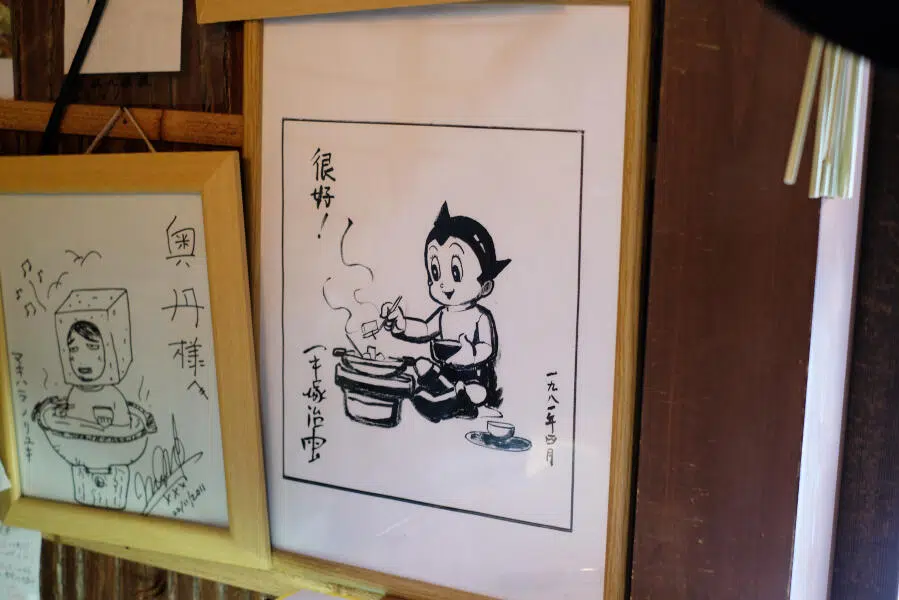 奥丹様へ
マキハラノリユキ
XXX
22/11/2011
很好!
手塚治虫
一九八一年四月